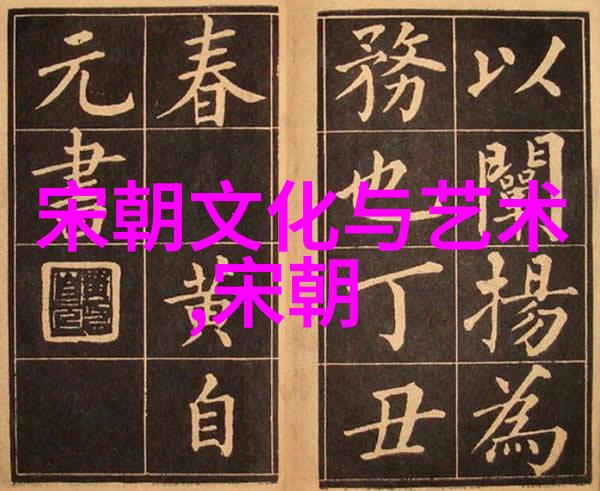 以闡揚為
務也丁丑
春黄自
元書
宋朝文化与艺术
,宋朝